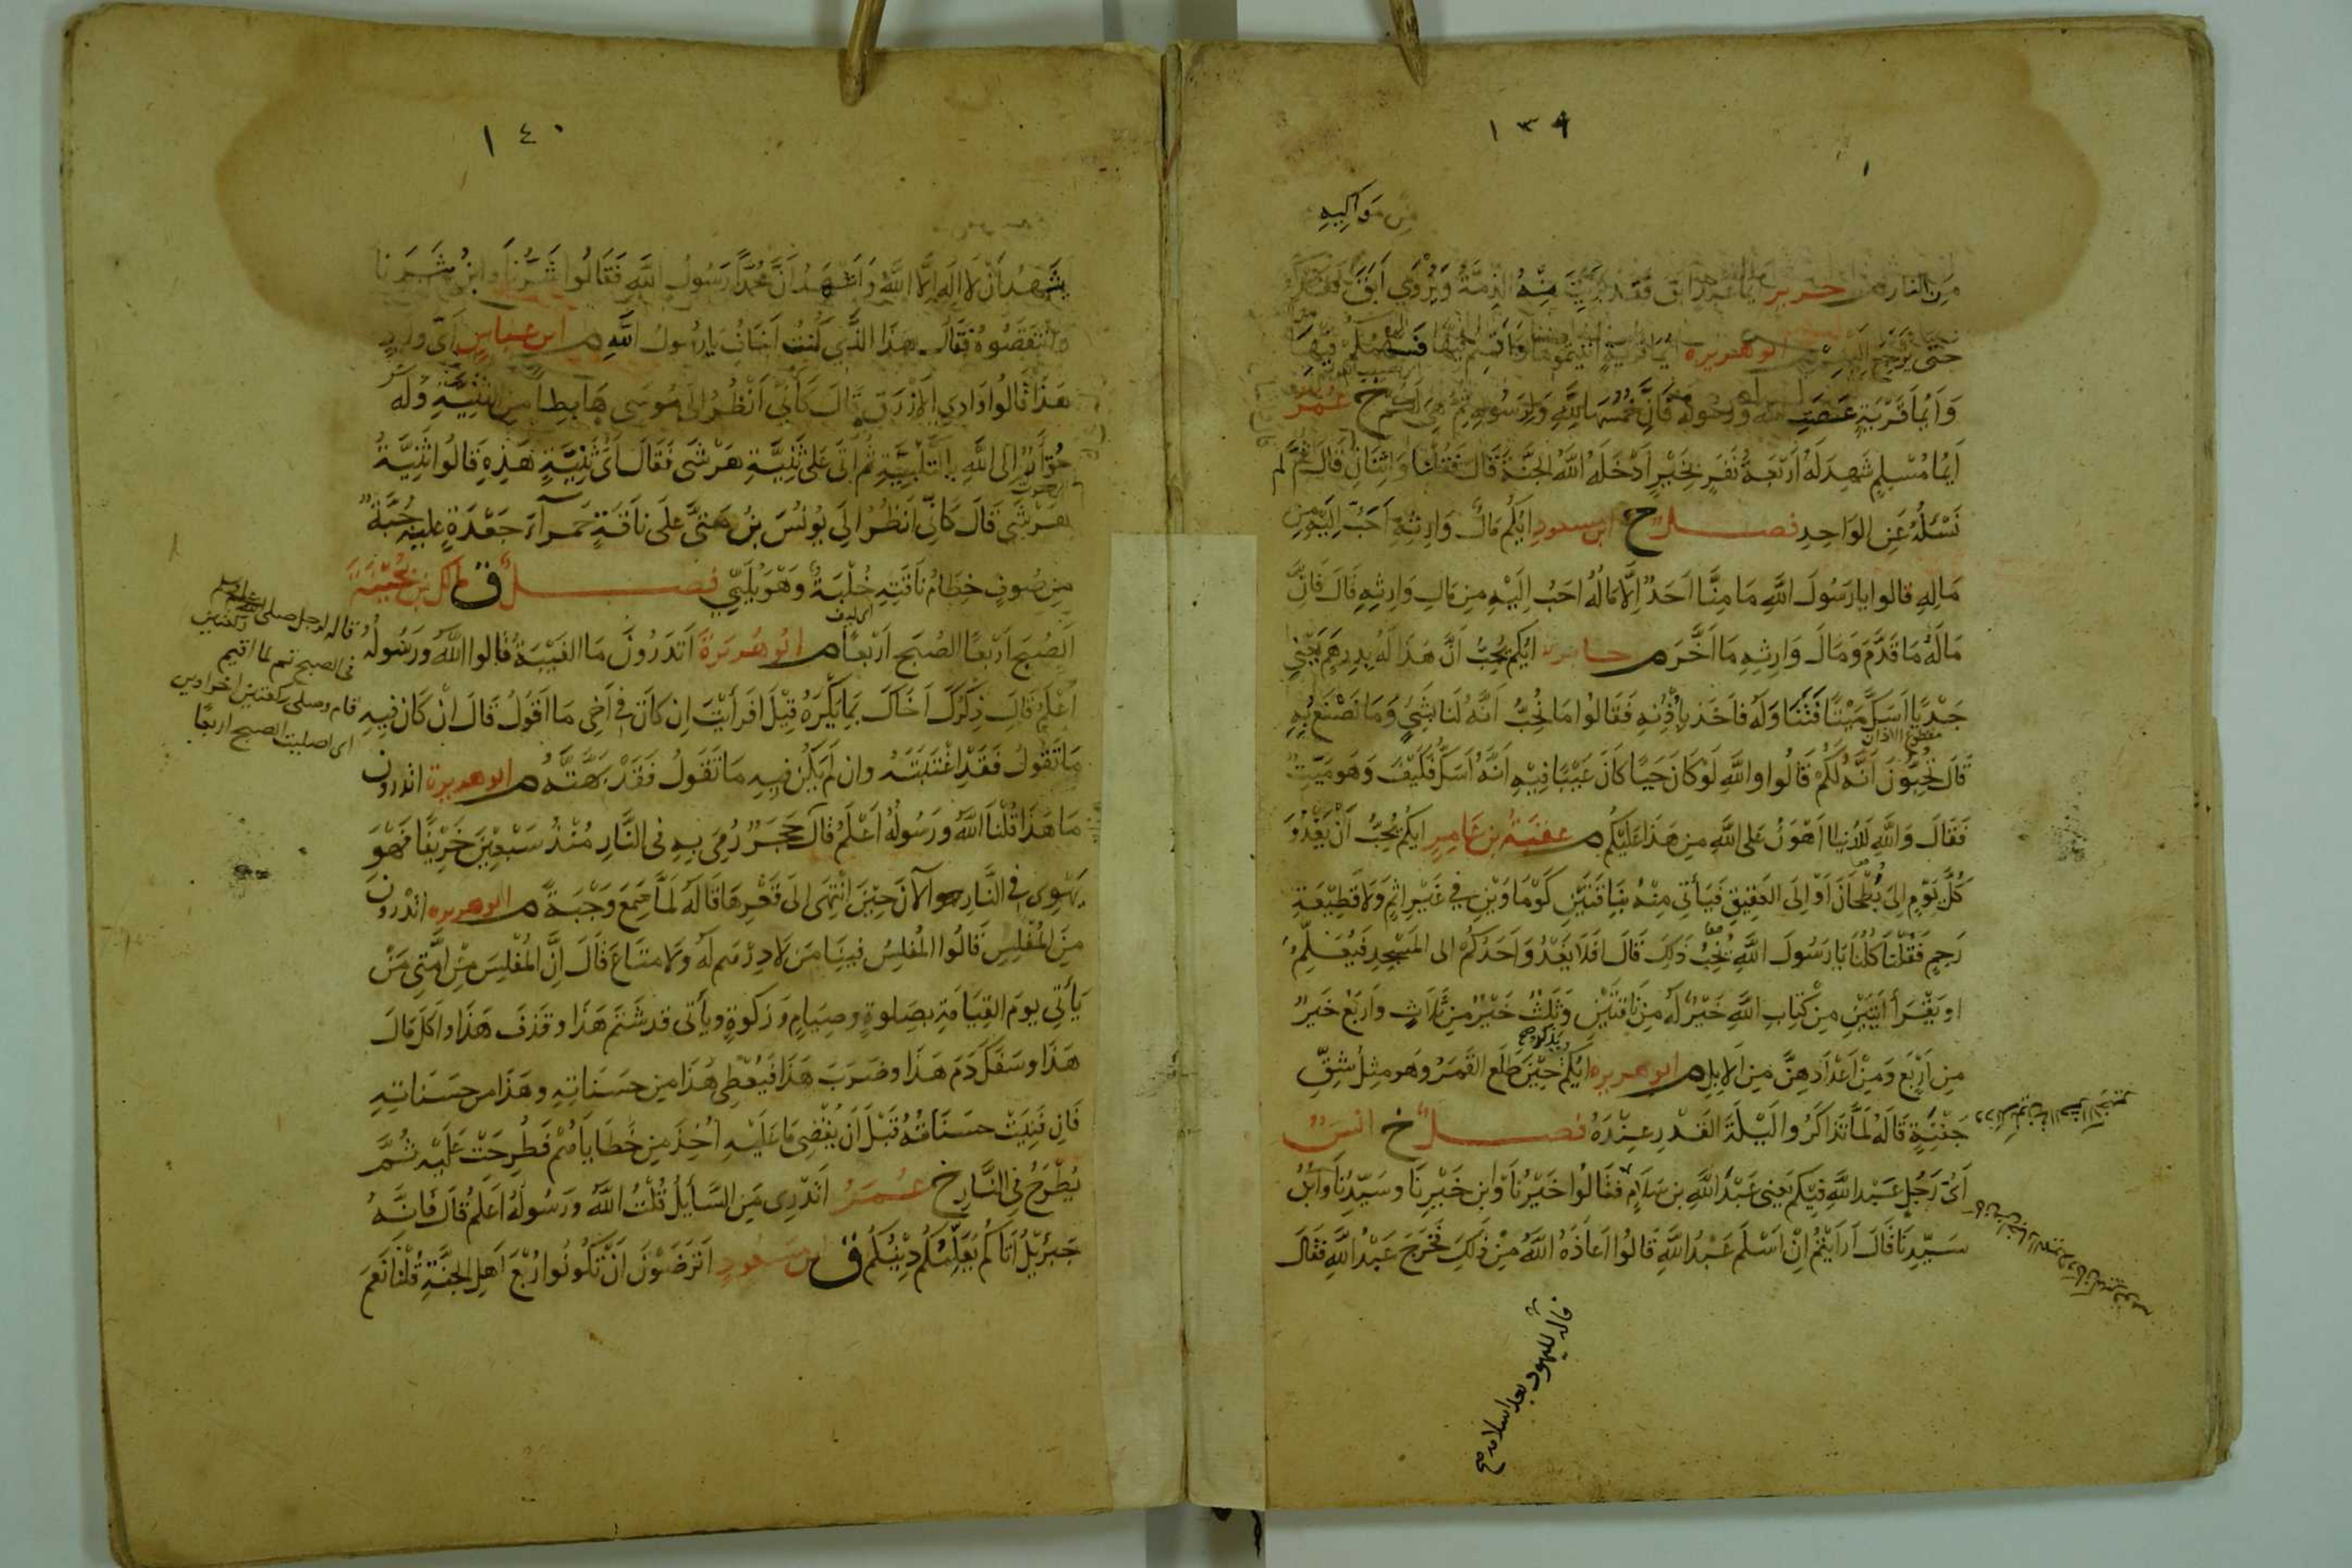 ١٣٩
من مواليه
من النار م جرير ايما عبد ابق فقد برئت منه الذمة ويروي ابق فقد كفر
حتى يرجع اليهم م ابو هريره ايما قرية اتيتموها واقمتم فيها فسهمكم فيها
وَاَيُّما قَرْيَةٍ عصت الله ورسوله فَاِنَّ خُمُسَهَا للهِ وَلِرَسُولِهِ ثُمَّ هِىَ لَكُمْ خ عُمَرُ
اَيُّما مُسْلِمٍ شَهِدَ لَهُ اَرْبَعَةُ نَفَرٍ بِخَيْرٍ اَدْخَلَهُ اللهُ الجَنَّةَ قَالَ فَقُلْنَا وَاثْنَانِ قَالَ ثُمَّ لم
نَسْئَلْهُ عَنِ الوَاحِدِ فصل خ ابن مسعود ايُّكُم مَالُ وَارِثِهِ اَحَبُّ اِلَيْهِ مِن
مَالِهِ قالوا يا رَسُولَ اللهِ مَا مِنَّا اَحَدٌ اِلَّا مَالُهُ احَبُّ اِلَيْهِ مِن مَالِ وَارِثِهِ قَالَ فَاِنَّ
مَالَهُ مَا قَدَّمَ وَمَالَ وَارِثِهِ مَا اَخَّرَ م جابر ايُّكم يُحِبُّ اَنَّ هَذَا لَهُ بِدِرهَمٍ يَعْنِي
جَدْيًا اَسَكَّ مَيْتًا فَتَنَاوَلَهُ فاَخَذَ بِاُذُنِهِ فَقَالُوا مَا نُحِبُّ اَنَّهُ لَنا بِشَيْءٍ وَمَا نَصْنَعُ بِهِ
مقطوع الاذان
قَالَ تُحِبُّونَ اَنَّهُ لَكُمْ قَالُوا وَاللهِ لَوْ كَانَ حَيًا كَانَ عَيْبًا فِيْهِ اَنَّهُ اَسَكُّ فَكَيْفَ وَهُوَ مَيِّتٌ
فَقَالَ وَاللهِ لَلدُّنيا اَهْوَنُ عَلى اللهِ مِن هَذَا عَلَيْكُم م عقبة بن عَامِرٍ ايكم يُحِبُّ اَنْ يَغْدُوَ
كُلَّ يَوْمٍ اِلى بُطْحَانَ اَوْ اِلَى العَقِيقِ فَيَأتِي مِنْهُ بِنَاقَتَيْنِ كَوْمَاوَيْنِ فِي غَيْرِ اِثْمٍ وَلَا قَطِيْعَةِ
رَحِمٍ فَقُلْنَا كُلُّنَا يَا رَسُولَ اللهِ نُحِبُّ ذَلِكَ قَالَ اَفَلَا يَغْدُو اَحَدُكُمْ الى المَسْجِدِ فَيُعَلِّمُ
او يَقْرَأ ايَتَيْنِ مِنْ كِتَابِ اللهِ خَيْرٌ لَهُ مِنْ نَاقَتَيْنِ وَثَلٰثٌ خَيْرٌ مِن ثَلَاثٍ واَرْبَعٌ خَيرٌ
يذكر صح
مِن اَرْبَعٍ وَمِنْ اَعْدَادِهِنَّ مِنَ الاِبِلِ م ابو هريره اَيُّكُمْ حِيْنَ طَلَعَ القَمَرُ وَهُوَ مِثْلُ شِقِّ
جَفْنَةٍ قَالَهُ لَمَّا تَذَاكَرُوا لَيْلَةَ القَدْرِ عِنْدَهُ فصل خ انس
اَىُّ رَجُلٍ عَبْدُ اللهِ فِيْكُم يَعْني عَبْدَ اللهِ بن سَلَامٍ فَقَالُوا خَيْرُنَا وَابن خَيْرِنَا وسَيِّدُنَا وَابْنُ
سَيِّدِنَا قَالَ اَرَاَيْتُمْ اِنْ اَسْلَمَ عَبْدُ اللهِ قَالُوا اَعَاذَهُ اللهُ مِنْ ذَلِكَ فَخَرَجَ عَبْدُ اللهِ فَقَالَ
قاله لليهود بعد اسلامه صح
١٤٠
يَشْهَدُ اَنْ لا اِلهَ اِلَّا اللهُ وَاَشْهَدُ اَنَّ مُحَمَّدًا رَسُولُ اللهِ فَقَالُوا شَرُّنَا وابنُ شَرِّنا
وانتَقَصُوهُ فَقَالَ هَذَا الَّذِي كُنْتُ اَخَافُ يا رَسُولَ اللهِ م ابن عباسٍ اَىُّ وَادٍ
هَذَا قَالُوا وَادِي الاَزْرَقِ قَالَ كَأَنِّي اَنْظُرُ اِلَى مُوسَى هَابِطًا مِنَ الثَّنِيَّةِ وَلَهُ
جُؤَارٌ اِلى اللهِ بِالتَّلْبِيَةِ ثُمَّ اَتَى عَلَى ثَنِيَّةِ هَرْشَى فَقَالَ اَىُّ ثَنِيَّةٍ هَذِهِ قَالُوا ثَنِيَّةُ
هَرْشَى قَالَ كَاَنِّي اَنْظُرُ اِلَى يُونُسَ بْنِ مَتَّى عَلَى نَاقَةٍ حَمرآءَ جَعْدَةٍ عليه جُبَّةٌ
مِن صُوفٍ خِطَامُ نَاقَتِهِ خُلْبَةٌ وَهُوَ يُلَبِّي فصل ق مالك بن بُحَيْنَةَ
اى ليف
اَلصُبْحَ اَرْبَعًا الصُبْحَ اَرْبَعًا م ابُو هُرَيْرَةَ اَتَدْرُونَ مَا الغِيْبَةُ قَالوا اللهُ ورَسُولُهُ
اَعْلَمُ قَالَ ذِكْرُكَ اَخَاكَ بِمَا يَكْرَهُ قِيْلَ اَفَرَاَيْتَ اِن كَانَ في اَخِى مَا اَقُولُ قَالَ اِنْ كَانَ فِيهِ
مَا تَقُولُ فَقَدْ اغْتَبْتَهُ وان لَمْ يَكُنْ فِيهِ مَا تَقُولُ فَقَدْ بَهَتَّهُ م ابو هريرة اتدرون
مَا هَذَا قُلْنَا اللهُ ورَسُولُهُ اَعْلَمُ قَالَ حَجَرٌ رُمِىَ بِهِ فى النَّارِ مُنْذُ سَبْعِيْنَ خَرِيْفًا فَهُوَ
يَهْوِى فِي النَّارِ الآنَ حِيْنَ انْتَهَى اِلَى قَعْرِهَا قَالَهُ لَمَّا سَمِعَ وَجْبَةً م ابو هريره اتدرون
مَنِ المُفْلِسُ قَالُوا المُفْلِسُ فِينَا مَن لَا دِرْهَمَ لَهُ ولَا متَاعَ قَالَ اِنَّ المُفْلِسَ مِنْ اُمَّتِي مَنْ
يَأتِي يَومَ القِيَامَةِ بِصَلوةٍ وصِيَامٍ وَزَكوةٍ ويأتى قد شَتَمَ هَذَا وقَذَفَ هَذَا واَكَلَ مَالَ
هَذَا وسَفَكَ دَمَ هَذَا وضَرَبَ هَذَا فَيُعْطِى هَذَا مِن حَسَنَاتِهِ وهَذَا من حَسَنَاتِهِ
فَاِن فَنِيَتْ حَسَنَاتُهُ قَبْلَ اَن يُقْضَى مَا عَلَيْهِ اُخِذَ مِن خَطَايَاهُمْ فَطُرِحَتْ عَلَيْهِ ثُمَّ
يُطْرَحُ فى النَّارِ خ عُمَرُ اَتَدْرِى مَنِ السَّايلُ قُلْتُ اللهُ ورَسُولُهُ اَعلَمُ قَالَ فَاِنَّهُ
جَبْرَئِيْلُ اَتَاكُم يُعَلِّمُكُم دِيْنَكُم ق ابن مَسْعُودٍ اَتَرْضَوْنَ اَنْ تَكُونُوا رُبْعَ اَهلِ الجَنَّةِ قُلْنَا نَعَم
قاله لرجل صلى ركعتين
فى الصبح ثم لما اقيم
قام وصلى ركعتين اخراوين
اى اصليت الصبح اربعا